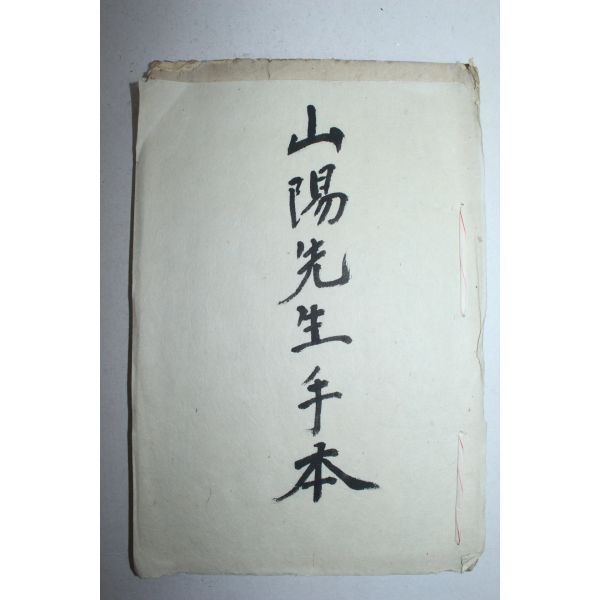 山陽先生手本